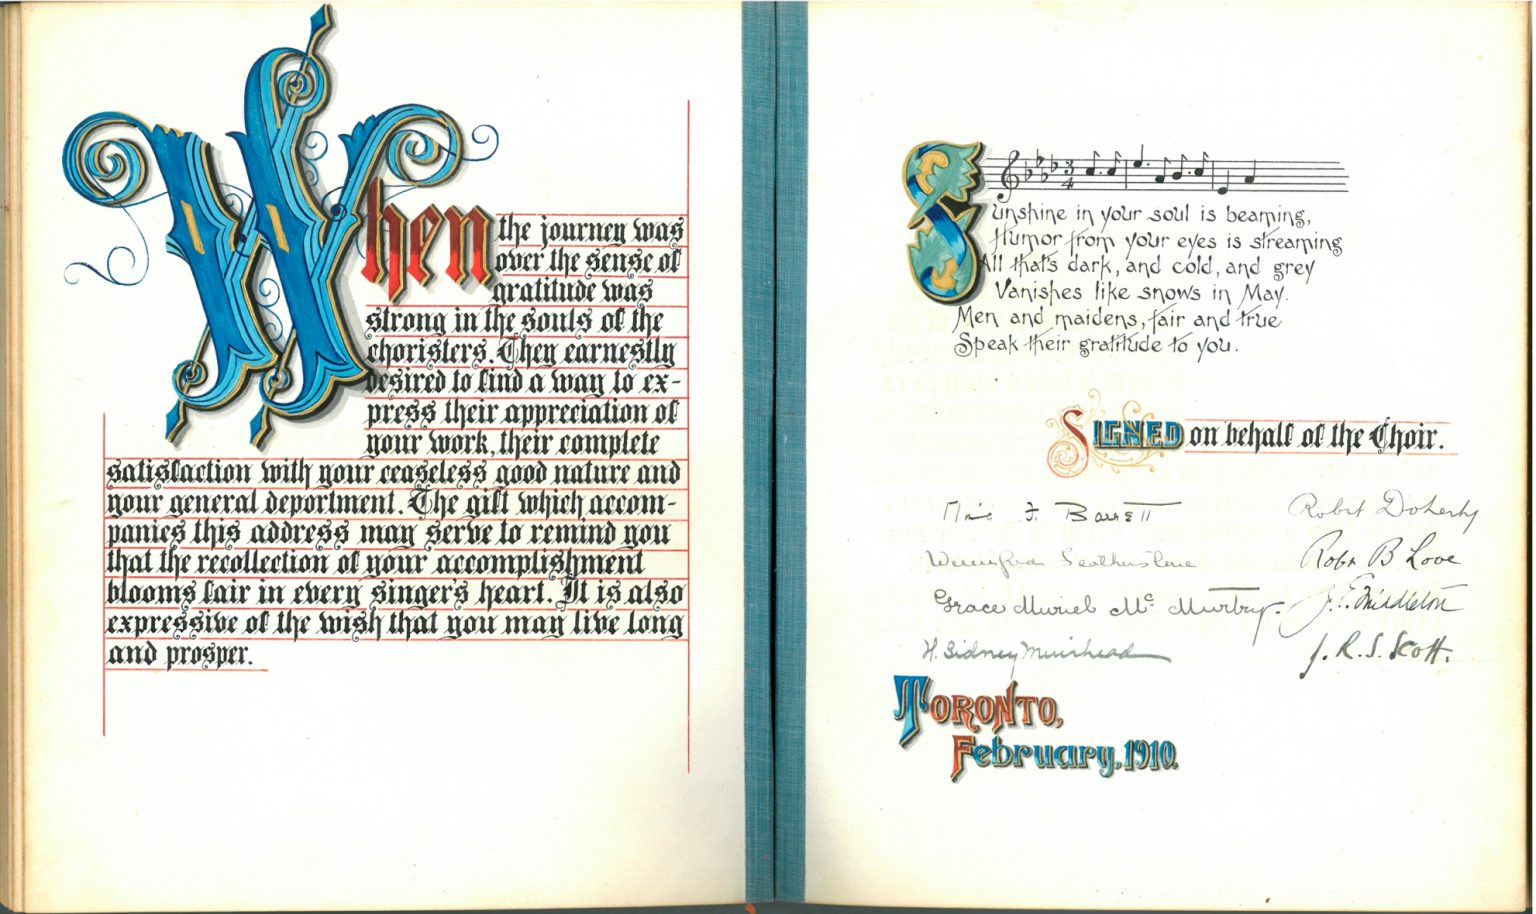 When the journey was
over the sense of
gratitude was
strong in the souls of the
choristers. They earnestly
desired to find a way to ex-
press their appreciation of
your work, their complete
satisfaction with your ceaseless good nature and
your general deportment. The gift which accom-
panies this address may serve to remind you
that the recollection of your accomplishment
blooms fair in every singer's heart. It is also
expressive of the wish that you may live long
and prosper.
Sunshine in your soul is beaming,
Humor from your eyes is streaming
All that's dark, and cold, and grey
Vanishes like snows in May.
Men and maidens, fair and true
Speak their gratitude to you.
SIGNED on behalf of the Choir.
F. Barrett
Robert Doherty
Robt B Love
Grace Muriel Mc Murtry.
J. E. Middleton
H. Sidney Muirhead
J. R. S. Scott.
TORONTO,
February, 1910.